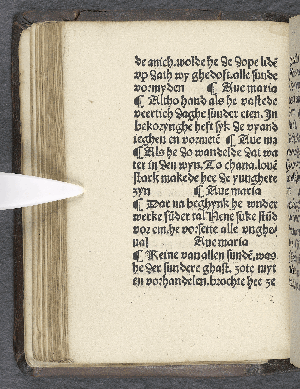 de anich. wolde he de dope lidē
vp dath wy ghedoft. alle sunde
vormyden ¶ Aue maria
¶ Altho hand als he vastede
veertich daghe sunder eten. In
bekorynghe heft syk de vyand
ieghen en vormetē ¶ Aue ma
¶ Als he do wandelde dat wa
ter in den wyn. To chana. love
stark makede hee de yunghere
zyn ¶ Aue maria
¶ Dar na beghynk he wnder
werke sūder tal
vor em. he vorsette alle vngho
ual Aue maria
¶ Reine van allen sundē. was
he der sundere ghast. zote wyt
en vorhandelen. brochte hee ze